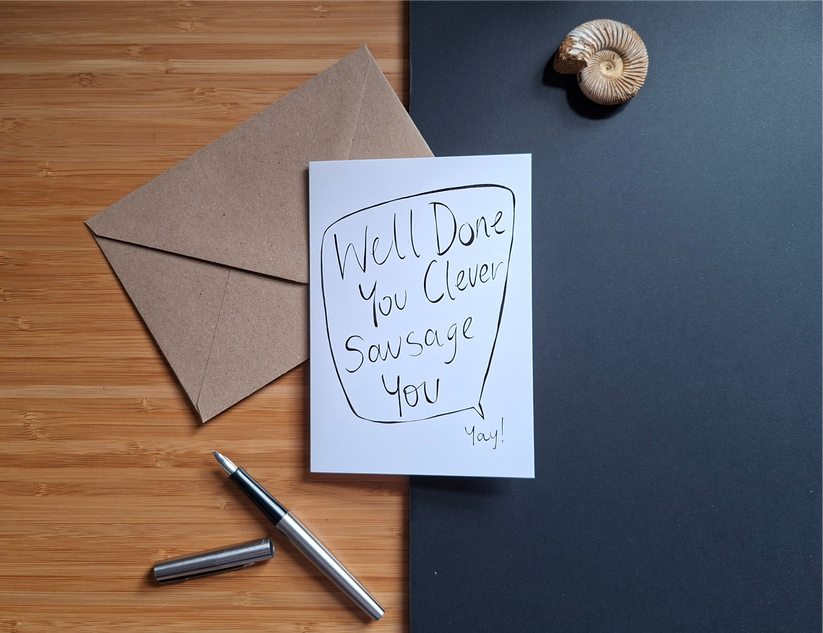 Well Done
You Clever
Sausage
You
Yay!